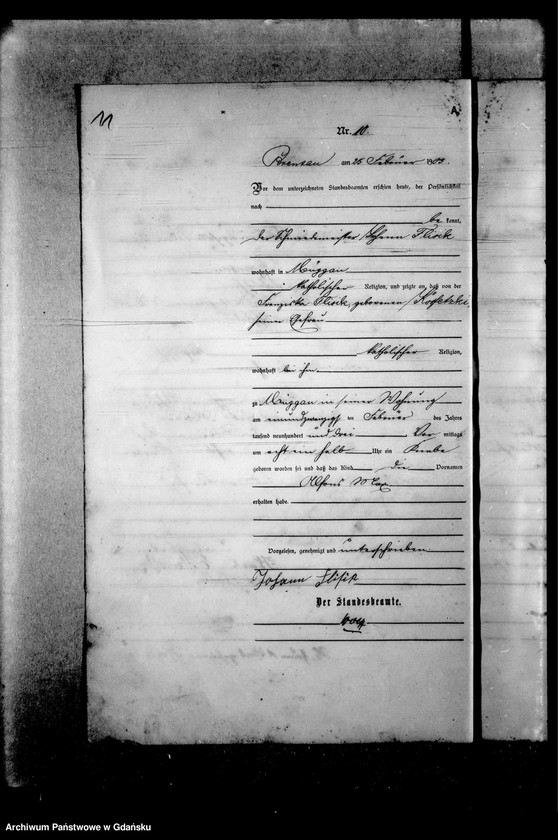 11
A.
Nr. 10.
am 25 Februar 1903.
Vor dem unterzeichneten Standesbeamten erschien heute, der Persönlichkeit
nach
be kannt,
der Schmiedemeister Johann Flisik
wohnhaft in Müggau
katholischer Religion, und zeigte an, daß von der
Franziska Flisik, geborenen
seiner Ehefrau
katholischer Religion,
wohnhaft bei ihm
zu Müggau in seiner Wohnung
am einundzwanzigsten Februar des Jahres
tausend neunhundert und drei Vor mittags
um acht ein halb Uhr ein Knabe
geboren worden sei und daß das Kind die Vornamen
Alfons Max
erhalten habe.
Vorgelesen, genehmigt und unterschrieben
Johann Flisik
Der Standesbeamte.
Archiwum Państwowe w Gdańsku